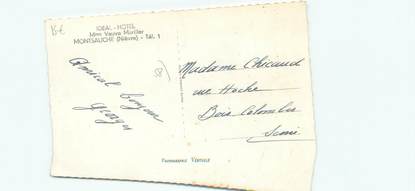 15 €
IDEAL-HOTEL
Mme Veuve
MONTSAUCHE (Nièvre) - Tél. 1
58
Amical bonjour
Georges
Madame Chicaud
rue Hoche
Bois Colombes
Seine